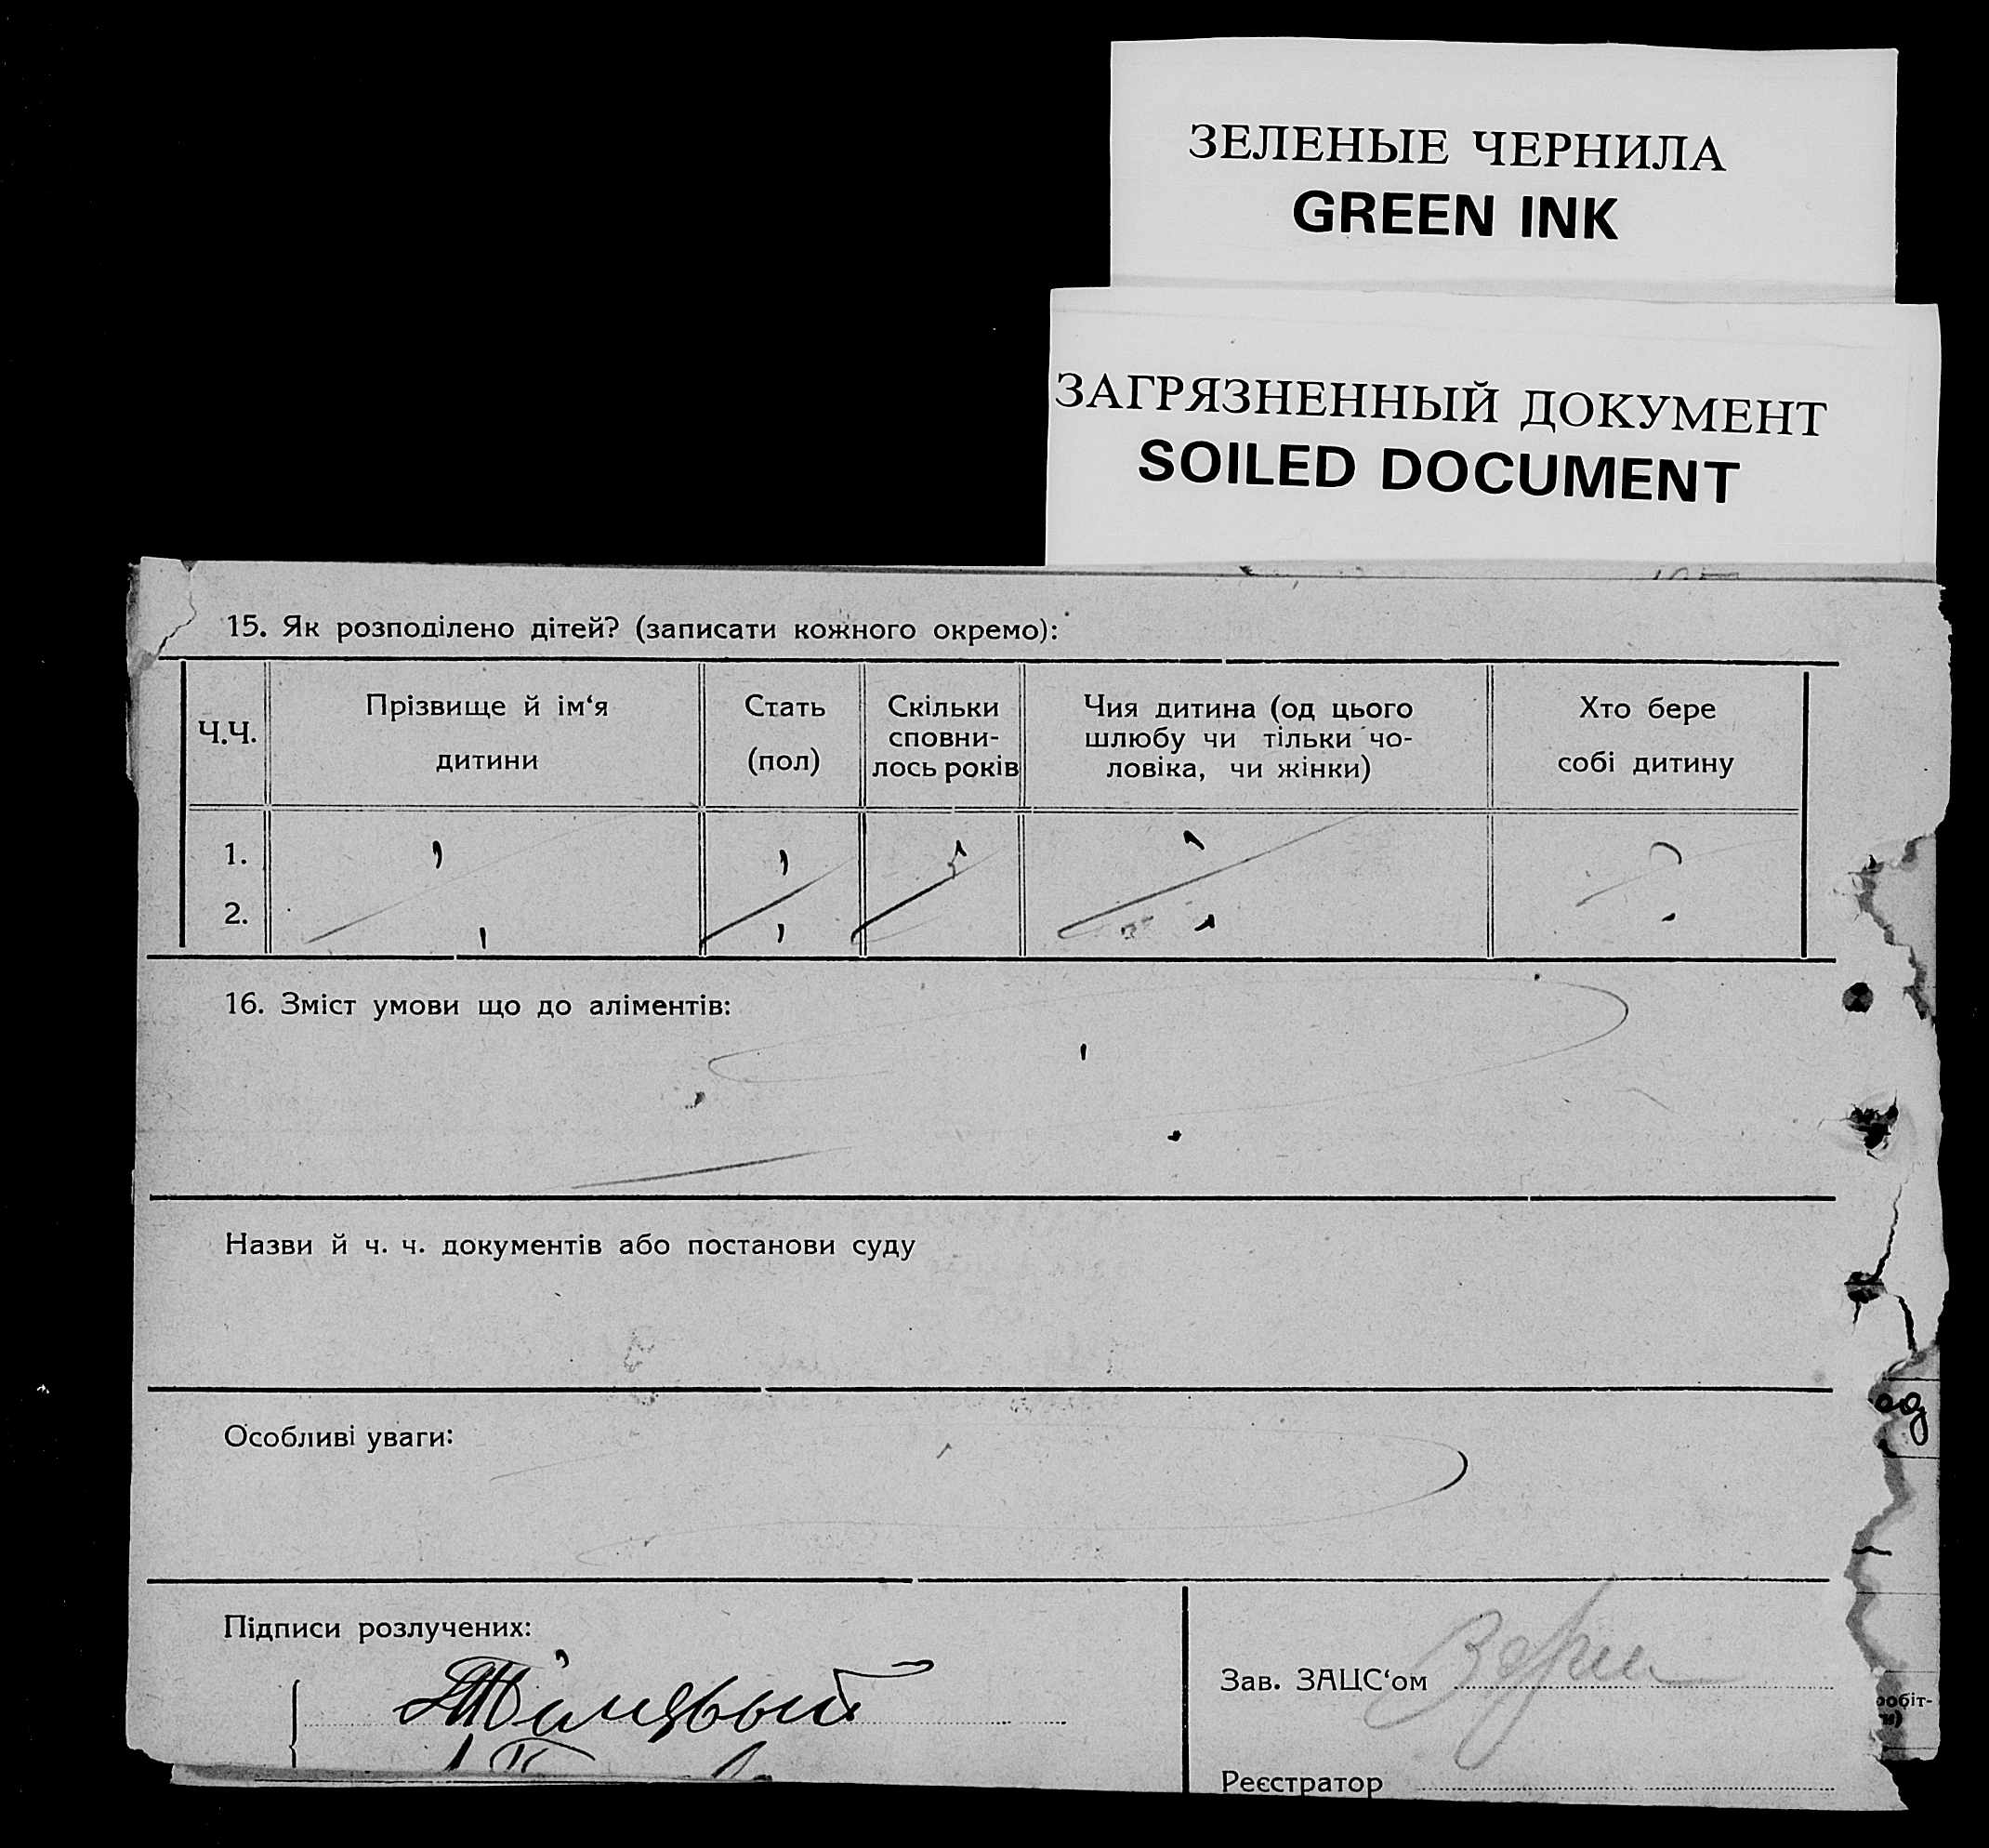 ЗЕЛЕНЫЕ ЧЕРНИЛА
GREEN INK
ЗАГРЯЗНЕННЫЙ ДОКУМЕНТ
SOILED DOCUMENT
15. Як розподілено дітей? (записати кожного окремо):
Ч.Ч.
Прізвище й ім‘я
дитини
Стать
(пол)
Скільки
сповни-
лось років
Чия дитина (од цього
шлюбу чи тільки чо-
ловіка, чи жінки)
Хто бере
собі дитину
1.
2.
16. Зміст умови що до аліментів:
Назви й ч. ч. документів або постанови суду
Особливі уваги:
Підписи розлучених:
Зав. ЗАЦС‘ом
Реєстратор